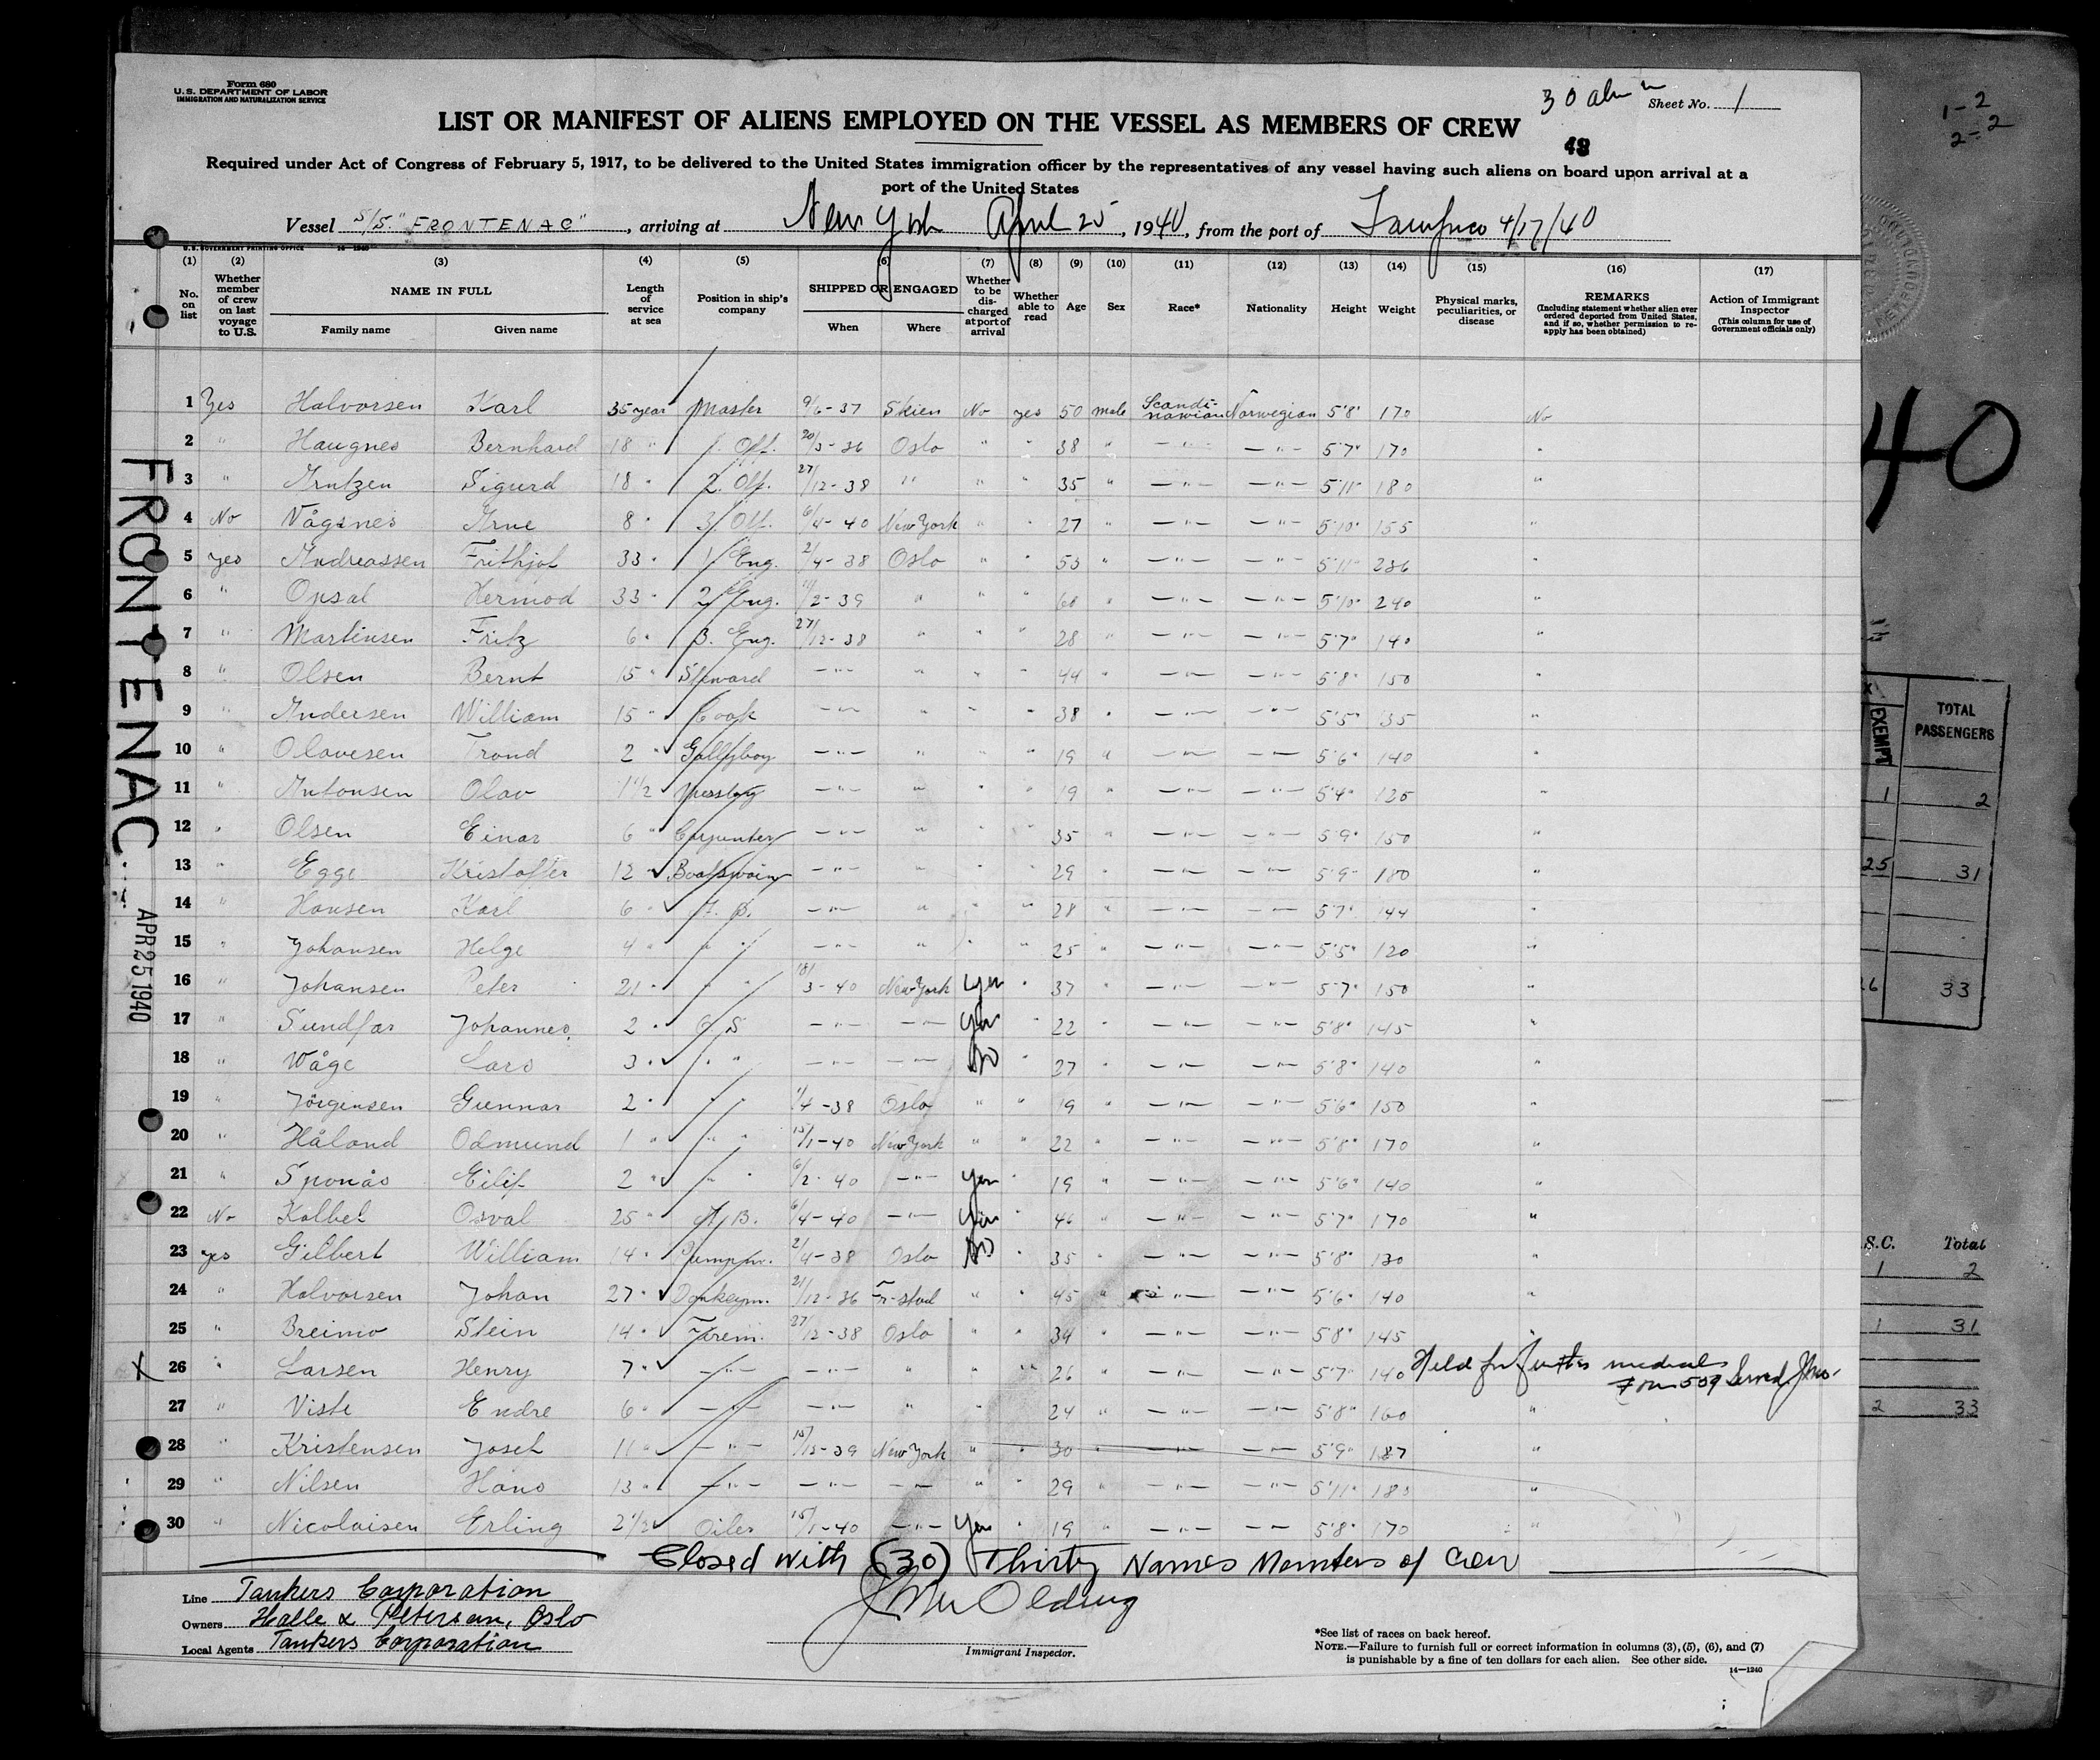 Form 680
U.S. DEPARTMENT OF LABOR
IMMIGRATION AND NATURALIZATION SERVICE
30
Sheet No. 1
LIST OR MANIFEST OF ALIENS EMPLOYED ON THE VESSEL AS MEMBERS OF CREW
Required under Act of Congress of February 5, 1917, to be delivered to the United States immigration officer by the representatives of any vessel having such aliens on board upon arrival at a
port of the United States
Vessel S/S. "FRONTENAC", arriving at New York April 25, 1940, from the port of Tampico 4/17/40
U.S. GOVERNMENT PRINTING OFFICE 14-1240
(1) (2) (3) (4) (5) (6) (7) (8) (9) (10) (11) (12) (13) (14) (15) (16) (17)
No. on list
Whether member of crew on last voyage to U.S.
NAME IN FULL
Family name Given name
Length of service at sea
Position in ship's company
SHIPPED OR ENGAGED
When Where
Whether to be discharged at port of arrival
Whether able to read
Age
Sex
Race*
Nationality
Height
Weight
Physical marks, peculiarities, or disease
REMARKS
(Including statement whether alien ever ordered deported from United States, and if so, whether permission to re-apply has been obtained)
Action of Immigrant Inspector
(This column for use of Government officials only)
1 Yes Halvorsen Karl 35 year Master 9/6-37 Skien No yes 50 male Scandinavian Norwegian 5'8" 170 No
2 " Haugnes Bernhard 18 " 1. Off. 20/3-36 Oslo " " 38 " -"- -"- 5'7" 170 "
3 " Arntzen Sigurd 18 " 2. Off. 27/12-38 " " " 35 " -"- -"- 5'11" 180 "
4 No Vågsnes Arne 8 " 3. Off. 6/4-40 New York " " 27 " -"- -"- 5'10" 155 "
5 yes Andreassen Frithjof 33 " 1. Eng. 2/4-38 Oslo " " 53 " -"- -"- 5'11" 236 "
6 " Opsal Hermod 33 " 2. Eng. 11/2-39 " " " 60 " -"- -"- 5'10" 240 "
7 " Martinsen Fritz 6 " 3. Eng. 27/12-38 " " " 28 " -"- -"- 5'7" 140 "
8 " Olsen Bernt 15 " Steward -"- " " " 44 " -"- -"- 5'8" 150 "
9 " Andersen William 15 " Cook -"- " " " 38 " -"- -"- 5'5" 135 "
10 " Olavesen Trond 2 " Gallyboy -"- " " " 19 " -"- -"- 5'6" 140 "
11 " Antonsen Olav 1 1/2 Messboy -"- " " " 19 " -"- -"- 5'4" 125 "
12 " Olsen Einar 6 " Carpenter -"- " " " 35 " -"- -"- 5'9" 150 "
13 " Egge Kristoffer 12 " Boatswain -"- " " " 29 " -"- -"- 5'9" 180 "
14 " Hansen Karl 6 " A. B. -"- " " " 28 " -"- -"- 5'7" 144 "
15 " Johansen Helge 4 " " " -"- " " " 25 " -"- -"- 5'5" 120 "
16 " Johansen Peter 21 " " " 18/3-40 New York yes " 37 " -"- -"- 5'7" 150 "
17 " Sundfar Johannes 2 " O. S -"- -"- yes " 22 " -"- -"- 5'8" 145 "
18 " Wåge Lars 3 " " " -"- -"- No " 27 " -"- -"- 5'8" 140 "
19 " Jörgensen Gunnar 2 " " " 1/4-38 Oslo " " 19 " -"- -"- 5'6" 150 "
20 " Håland Odmund 1 " " " 15/1-40 New York " " 22 " -"- -"- 5'8" 170 "
21 " Sponås Eilif 2 " " " 6/2-40 -"- yes " 19 " -"- -"- 5'6" 140 "
22 No Kolbet Osval 25 " A. B. 6/4-40 -"- yes " 46 " -"- -"- 5'7" 170 "
23 yes Gilbert William 14 " Pumpm. 2/4-38 Oslo No " 35 " -"- -"- 5'8" 130 "
24 " Halvorsen Johan 27 " Donkeym. 21/12-36 Fr-stad " " 45 " -"- -"- 5'6" 140 "
25 " Breimo Stein 14 " Firem. 27/12-38 Oslo " " 34 " -"- -"- 5'8" 145 "
X 26 " Larsen Henry 7 " -"- -"- " " " 26 " -"- -"- 5'7" 140 Held for further medical Form 509 Served
27 " Viste Endre 6 " -"- -"- " " 24 " -"- -"- 5'8" 160 "
28 " Kristensen Josef 11 " -"- 15/12-39 New York " " 30 " -"- -"- 5'9" 187 "
29 " Nilsen Hans 13 " -"- -"- -"- " " 29 " -"- -"- 5'11" 180 "
30 " Nicolaisen Erling 2 1/2 Oiler 15/1-40 -"- yes " 19 " -"- -"- 5'8" 170 "
Closed with (30) Thirty Names Members of Crew
Line Tankers Corporation
Owners Halle & Petersen, Oslo
Local Agents Tankers Corporation
Immigrant Inspector.
*See list of races on back hereof.
NOTE.—Failure to furnish full or correct information in columns (3), (5), (6), and (7)
is punishable by a fine of ten dollars for each alien. See other side.
14—1240
FRONTENAC
APR 25 1940
1-2
2-2
40
EXEMPT
TOTAL PASSENGERS
1 2
25 31
33
S.C. Total
1 2
1 31
2 33